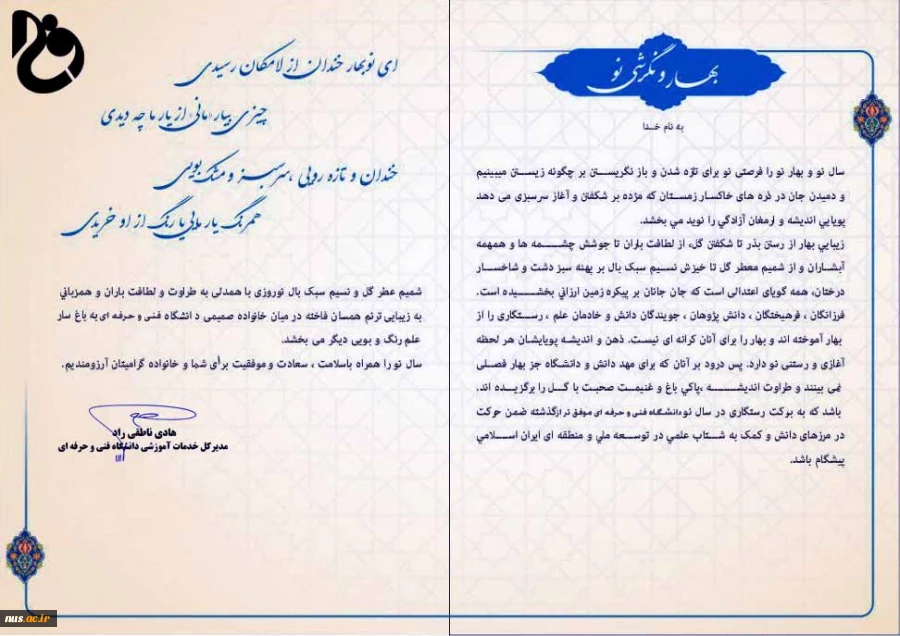 بهار و نگرشی نو
به نام خدا
سال نو و بهار نو را فرصتی نو برای تازه شدن و باز نگریستن بر چگونه زیستن میبینیم
و دمیدن جان در ذره های خاکسار زمستان که مژده بر شکفتن و آغاز سرسبزی می دهد
پویایي اندیشه و ارمغان آزادگي را نوید مي بخشد.
زیبایي بهار از رستن بذر تا شکفتن گل، از لطافت باران تا جوشش چشمه ها و همهمه
آبشاران و از شمیم معطر گل تا خیزش نسیم سبک بال بر پهنه سبز دشت و شاخسار
درختان، همه گویای اعتدالی است که جان جانان بر پیکره زمین ارزاني بخشیده است.
فرزانگان ، فرهیختگان ، دانش پژوهان ، جویندگان دانش و خادمان علم ، رستگاری را از
بهار آموخته اند و بهار را برای آنان کرانه ای نیست. ذهن و اندیشه پویایشان هر لحظه
آغازی و رستنی نو دارد. پس درود بر آنان که برای مهد دانش و دانشگاه جز بهار فصلی
نمی بینند و طراوت اندیشه ،پاکي باغ و غنیمت صحبت با گل را برگزیده اند.
باشد که به برکت رستگاری در سال نو دانشگاه فنی و حرفه ای موفق تر ازگذشته ضمن حرکت
در مرزهای دانش و کمک به شتاب علمي در توسعه ملي و منطقه ای ایران اسلامي
پیشگام باشد.
ای نوبهار خندان از لامکان رسیدی
چیزی بیار مانی از یار ما چه دیدی
خندان و تازه رویی ،سرسبز و مشک بویی
همرنگ یار مایی یا رنگ از او خریدی
شمیم عطر گل و نسیم سبک بال نوروزی با همدلی به طراوت و لطافت باران و همزباني
به زیبایی ترنم همسان فاخته در میان خانواده صمیمی دانشگاه فنی و حرفه ای به باغ سار
علم رنگ و بویی دیگر می بخشد.
سال نو را همراه باسلامت ، سعادت و موفقیت برای شما و خانواده گرامیتان آرزومندیم.
هادی ناطقی راد
مدیرکل خدمات آموزشی دانشگاه فنی و حرفه ای
nus.ac.ir